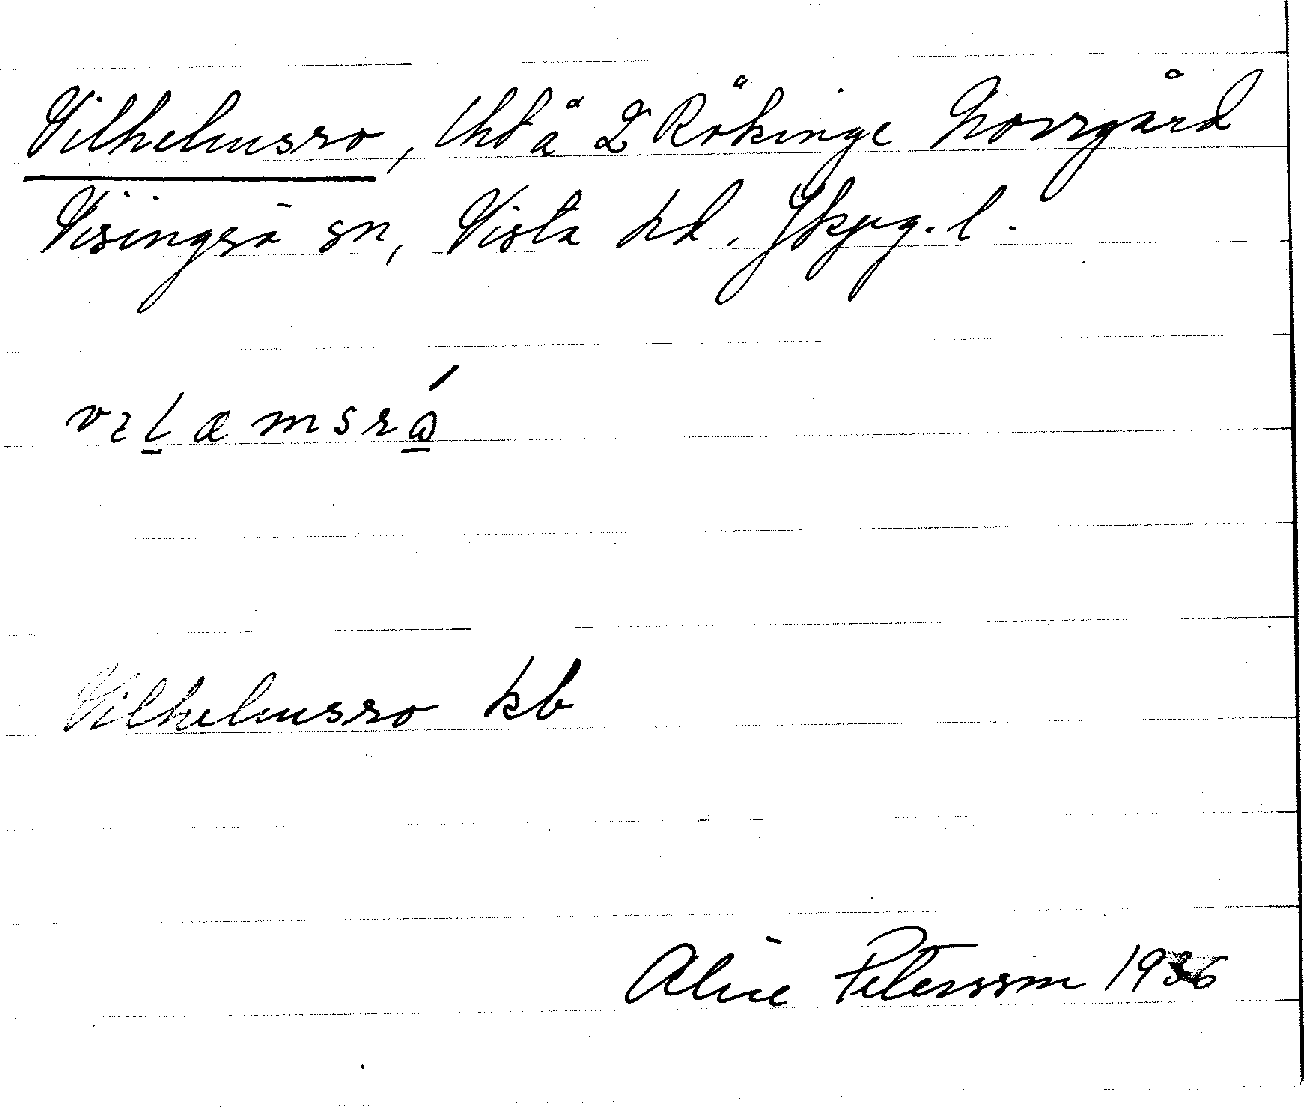 Vilhelmsro, lht å 2 Rökinge Norrgård
Visingsö sn, Vista hd. Jkpg. l.
vɪlæmsrɷ́
Vilhelmsro kb
Alice Petersson 1936